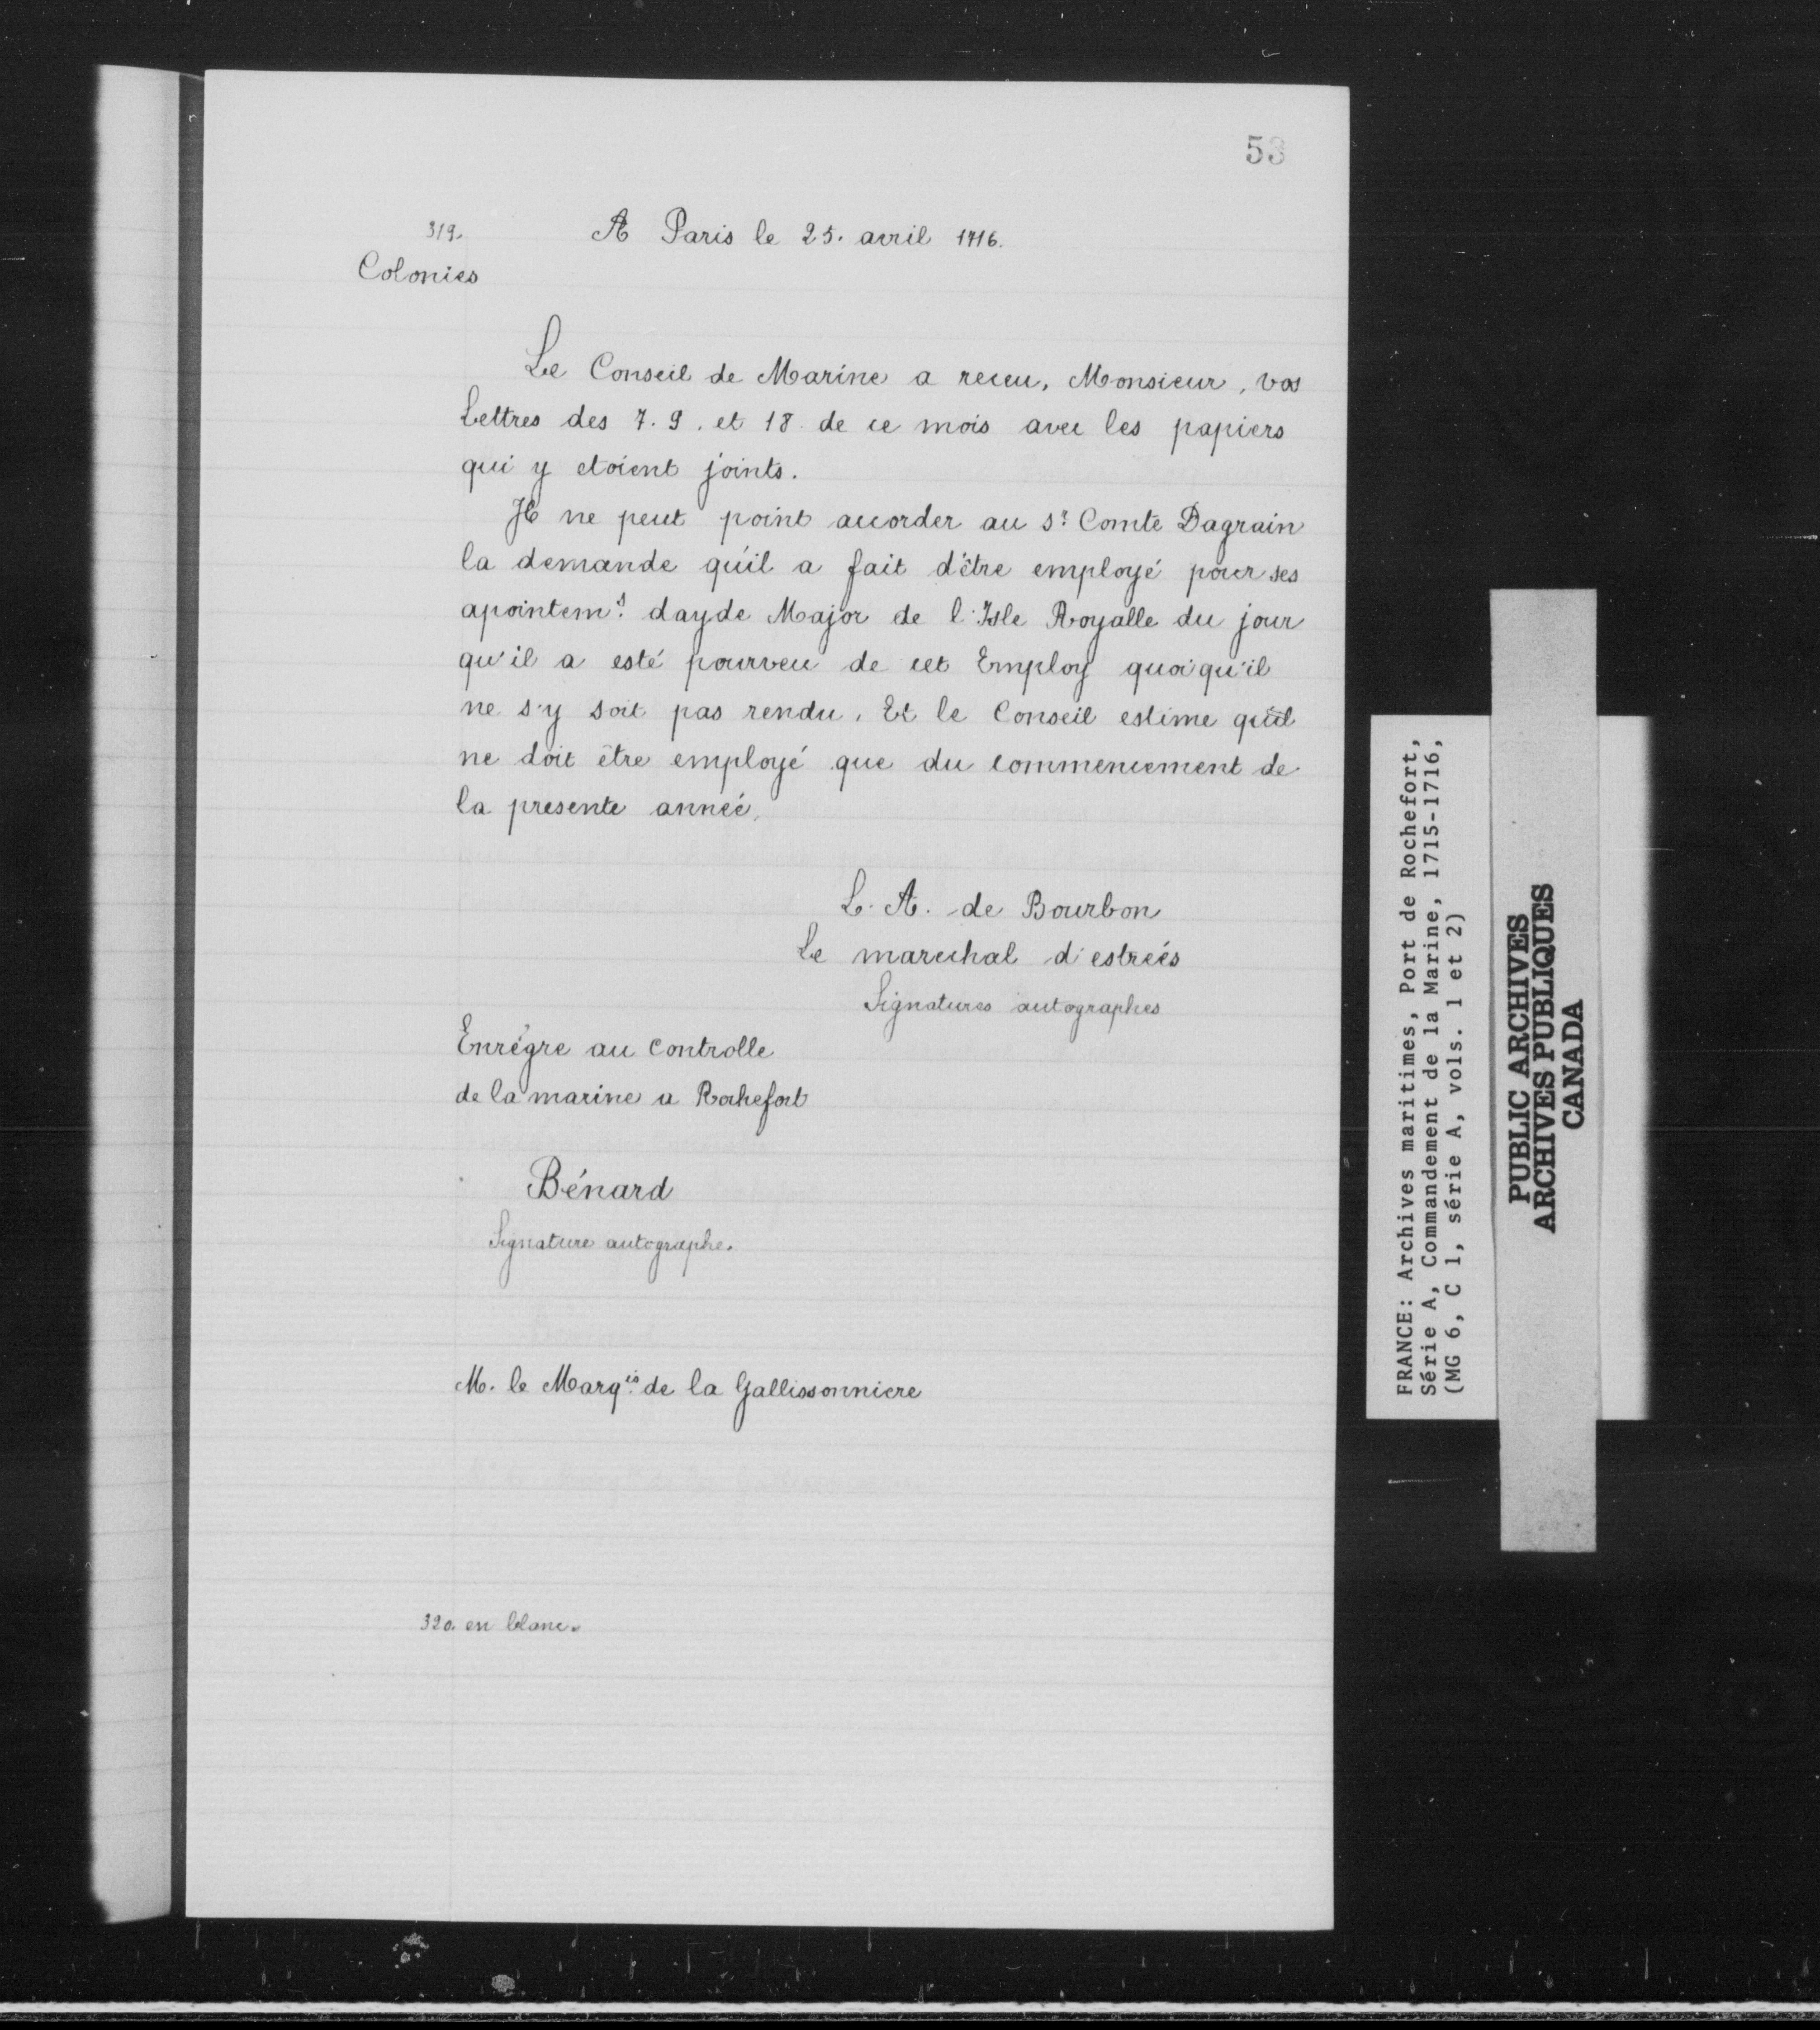 53
319.
A Paris le 25. avril 1716.
Colonies
Le Conseil de Marine a receu, Monsieur, vos
Lettres des 7. 9. et 18. de ce mois avec les papiers
qui y etoient joints.
Il ne peut point accorder au Sr. Comte Dagrain
la demande qu'il a fait d'être employé pour ses
apointemts. dayde Major de l'Isle Royalle du jour
qu'il a esté pourveu de cet Employ quoi qu'il
ne s'y soit pas rendu. Et le Conseil estime qu'il
ne doit être employé que du commencement de
la presente année.
L. A. de Bourbon
Le marechal d'estrées
Signatures autographes
Enrégre au controlle
de la marine a Rochefort
Bénard
Signature autographe.
M. le Marqis. de la Gallissonniere
320. en blanc.
FRANCE: Archives maritimes, Port de Rochefort,
Série A, Commandement de la Marine, 1715-1716,
(MG 6, C 1, série A, vols. 1 et 2)
PUBLIC ARCHIVES
ARCHIVES PUBLIQUES
CANADA